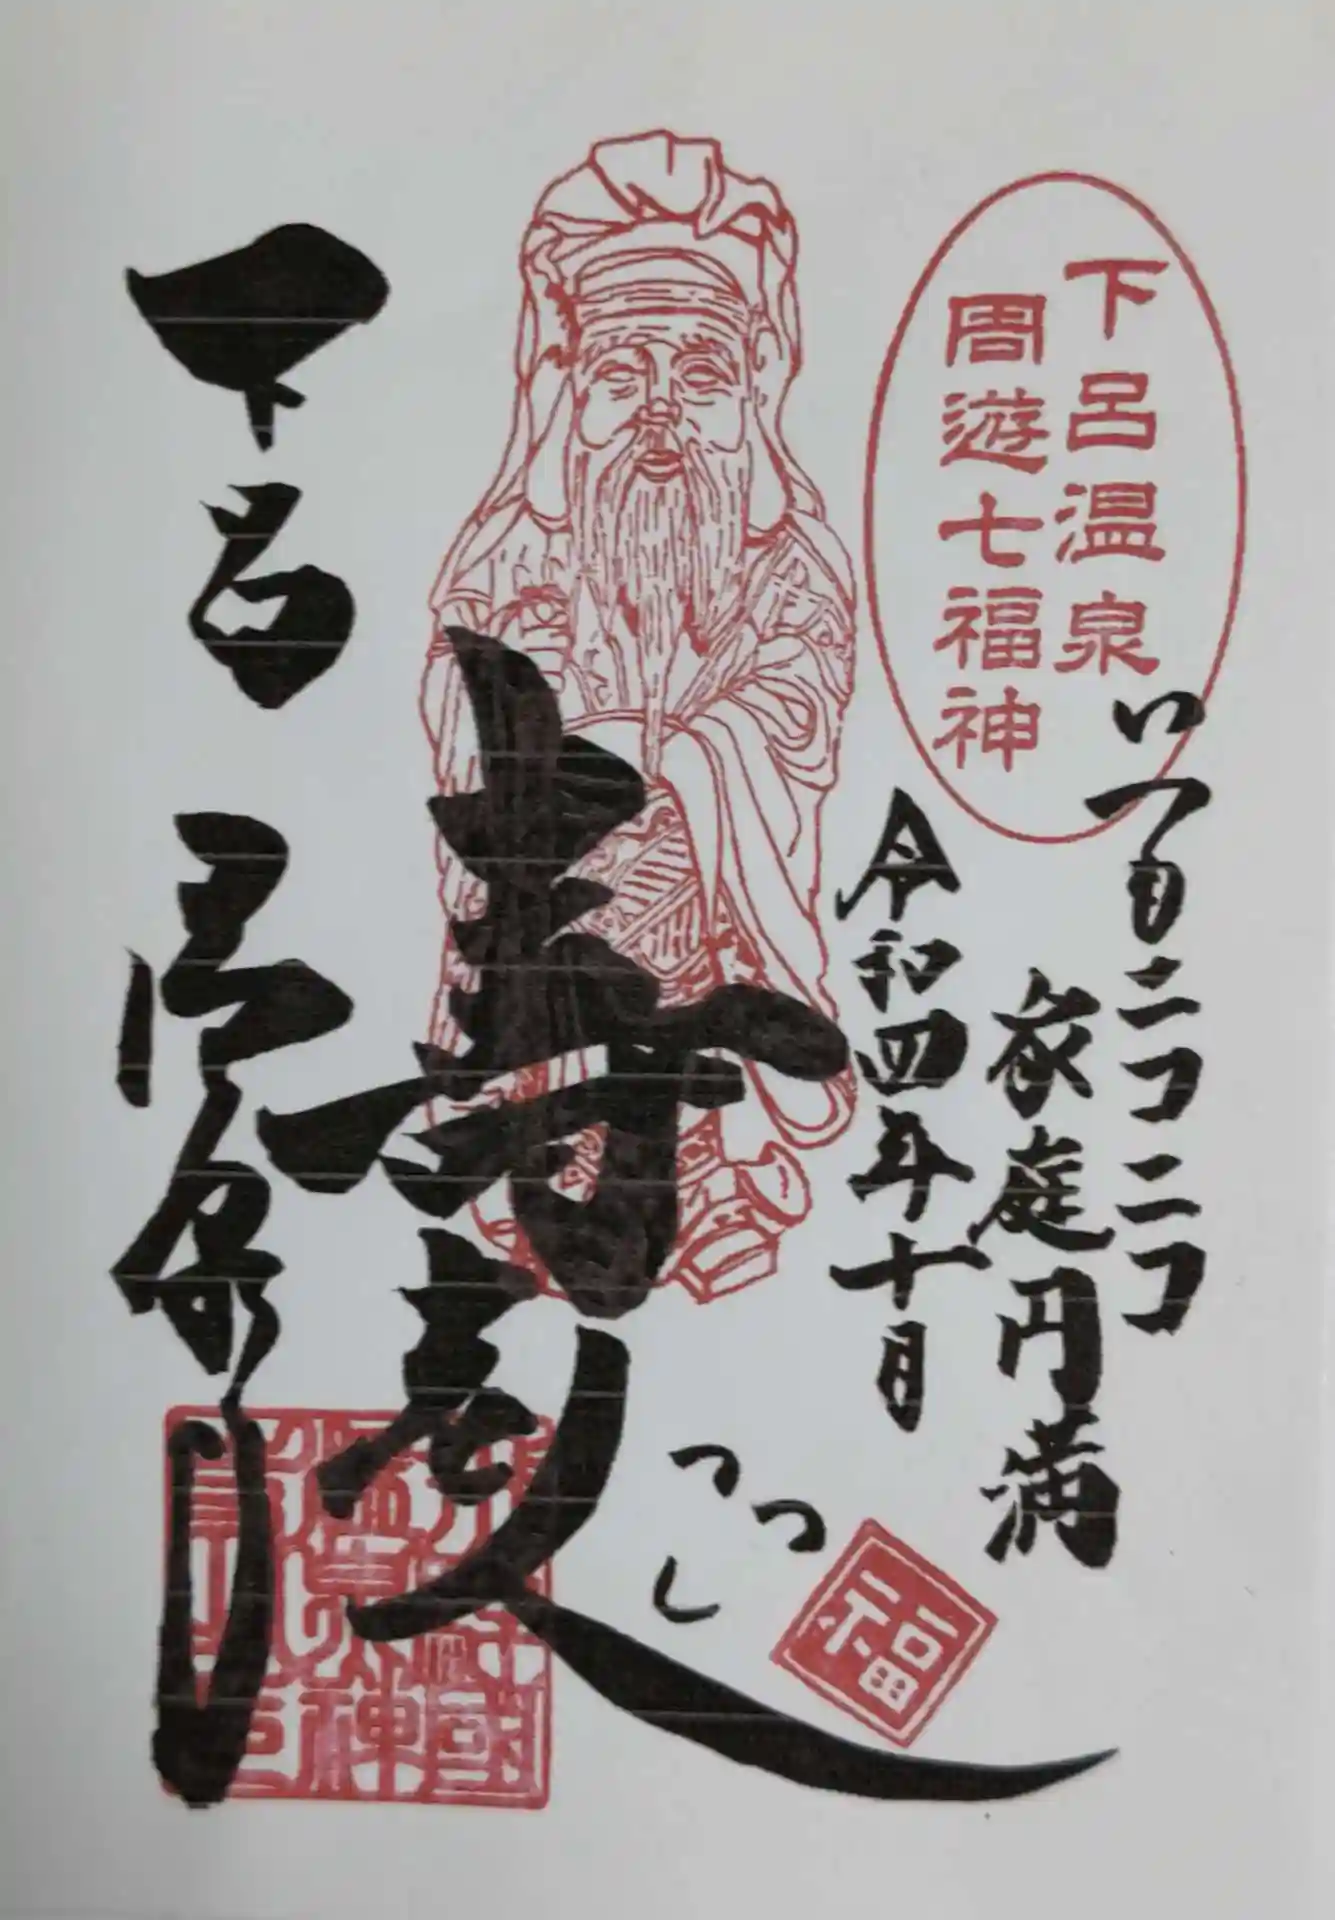 下呂温泉
周遊七福神
いつもニコニコ
家庭円満
令和四年十月
福
寿老人
下呂温泉